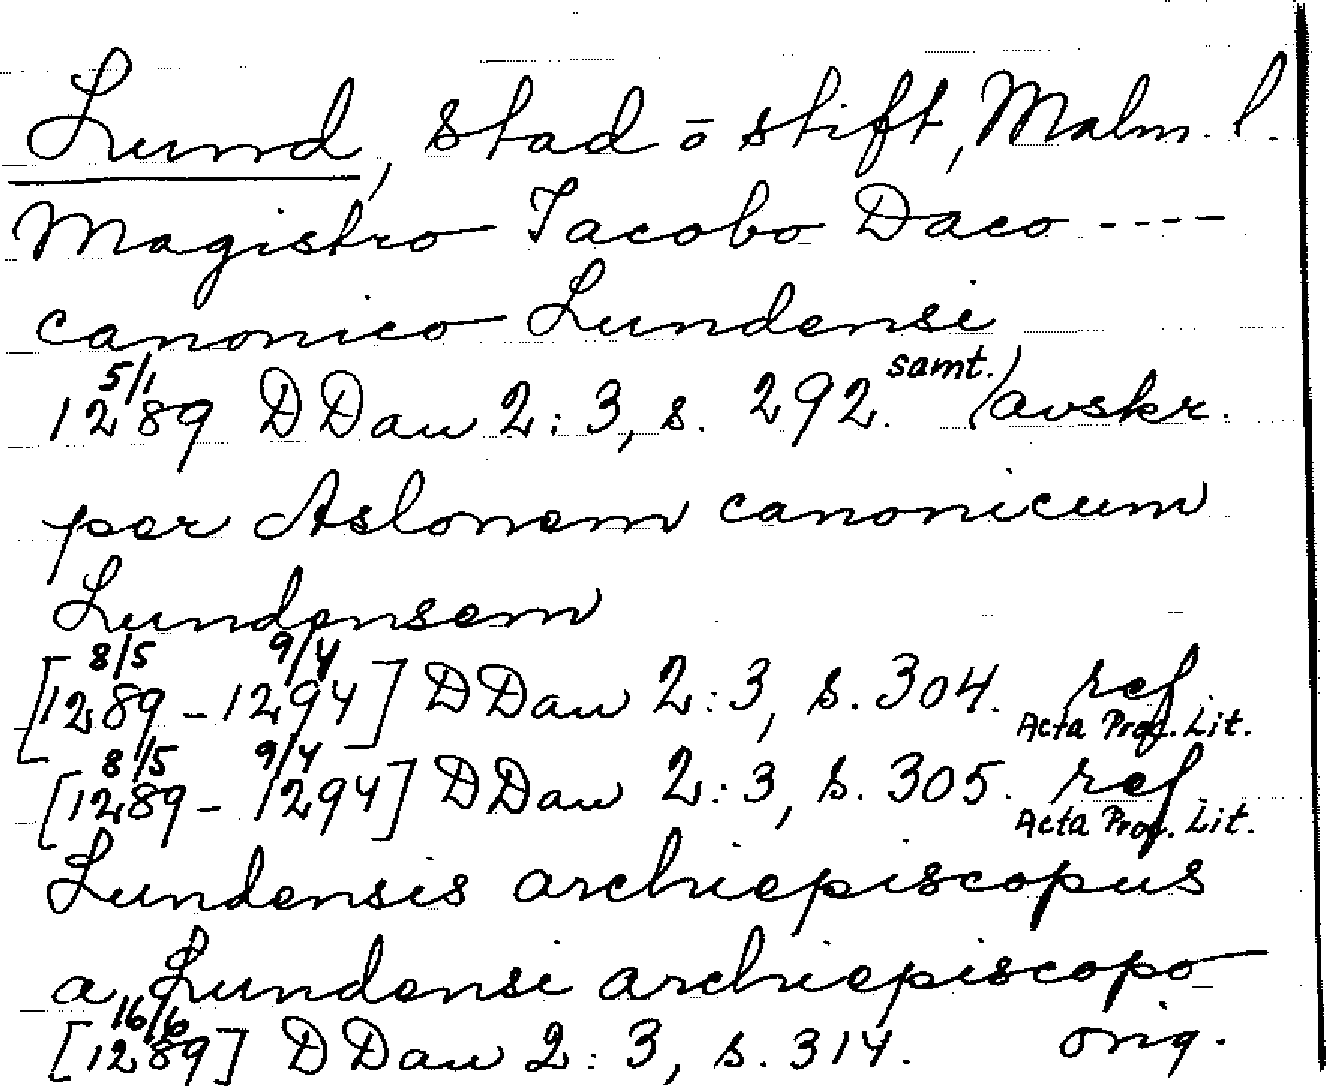 Lund, stad ō stift, Malm. l.
Magistro Iacobo Daco ----
canonico Lundensi
5/1 samt.
1289 DDan 2:3, s. 292. avskr.
per Aslonem canonicum
Lundensem
8/5 9/4
[1289 - 1294] DDan 2:3, s. 304. ref.
Acta Proc. Lit.
8/5 9/4
[1289 - 1294] DDan 2:3, s. 305. ref.
Acta Proc. Lit.
Lundensis archiepiscopus
a Lundensi archiepiscopo
16/6
[1289] DDan 2:3, s. 314. orig.